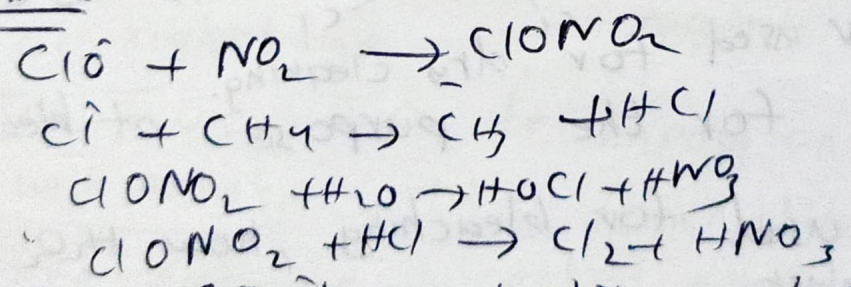 ClȮ + NO₂ → ClONO₂
Cl̇ + CH4 → ĊH₃ + HCl
ClONO₂ + H₂O → HOCl + HNO₃
ClONO₂ + HCl → Cl₂ + HNO₃